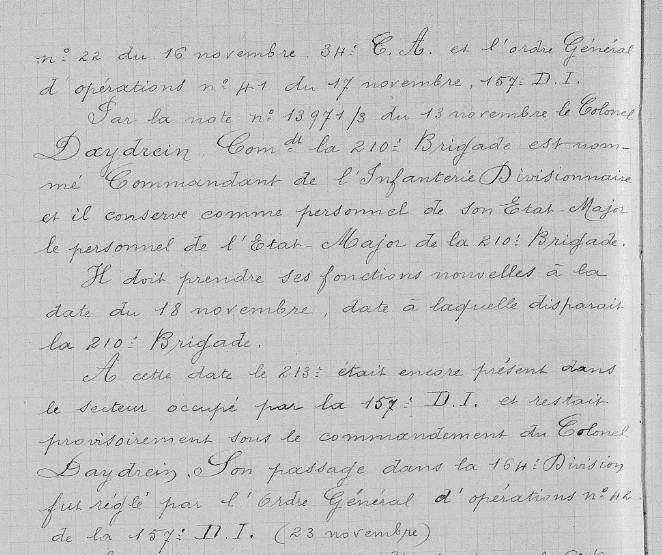 n° 22 du 16 novembre. 34e C. A. et l'ordre Général
d'opérations n° 41 du 17 novembre, 157e D. I.
Par la note n° 13971/3 du 13 novembre le Colonel
Daydrein, Comdt la 210e Brigade est nom-
mé Commandant de l'Infanterie Divisionnaire
et il conserve comme personnel de son Etat-Major
le personnel de l'Etat-Major de la 210e Brigade.
Il doit prendre ses fonctions nouvelles à la
date du 18 novembre, date à laquelle disparait
la 210e Brigade.
A cette date le 213e était encore présent dans
le secteur occupé par la 157e D. I. et restait
provisoirement sous le commandement du Colonel
Daydrein. Son passage dans la 164e Division
fut réglé par l'Ordre Général d'opérations n° 42
de la 157e D. I. (23 novembre)